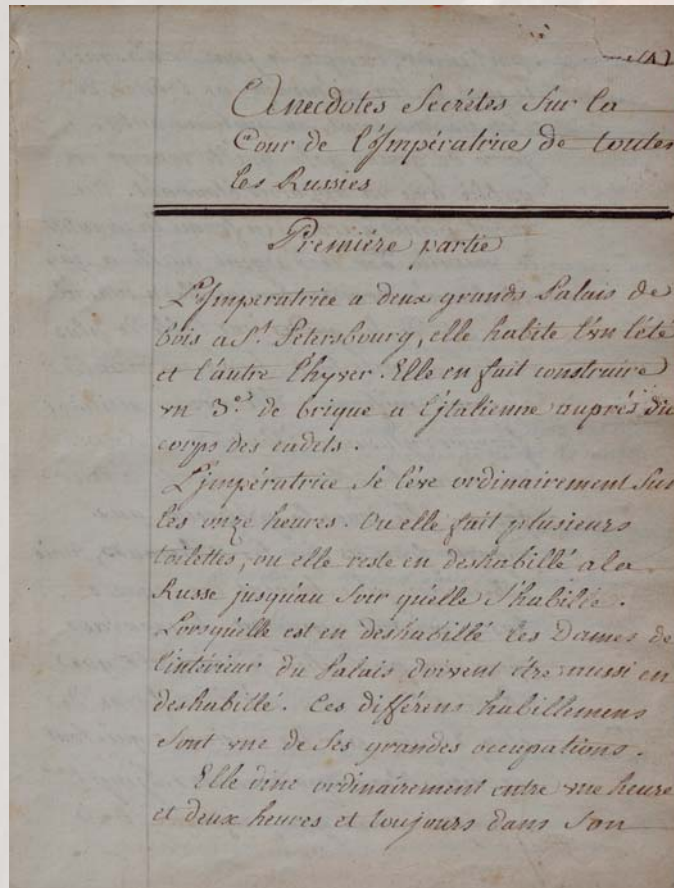 (1)
Anecdotes Secrétes Sur la
Cour de l'Impératrice de toutes
les Russies
Premiére partie
L'Imperatrice a deux grands Palais de
bois a St. Petersbourg, elle habite l'vn l'été
et l'autre l'hyver. Elle en fait construire
vn 3e. de brique a l'jtalienne auprés du
corps des cadets.
L'jmpératrice se léve ordinairement sur
les onze heures. Ou elle fait plusieurs
toilettes, ou elle reste en deshabillé a la
Russe jusqu'au soir qu'elle s'habille.
Lorsqu'elle est en deshabillé les Dames de
l'intérieur du Palais doivent étre aussi en
deshabillé. Ces différens habillemens
sont vne de ses grandes occupations.
Elle dine ordinairement entre vne heure
et deux heures et toujours dans son